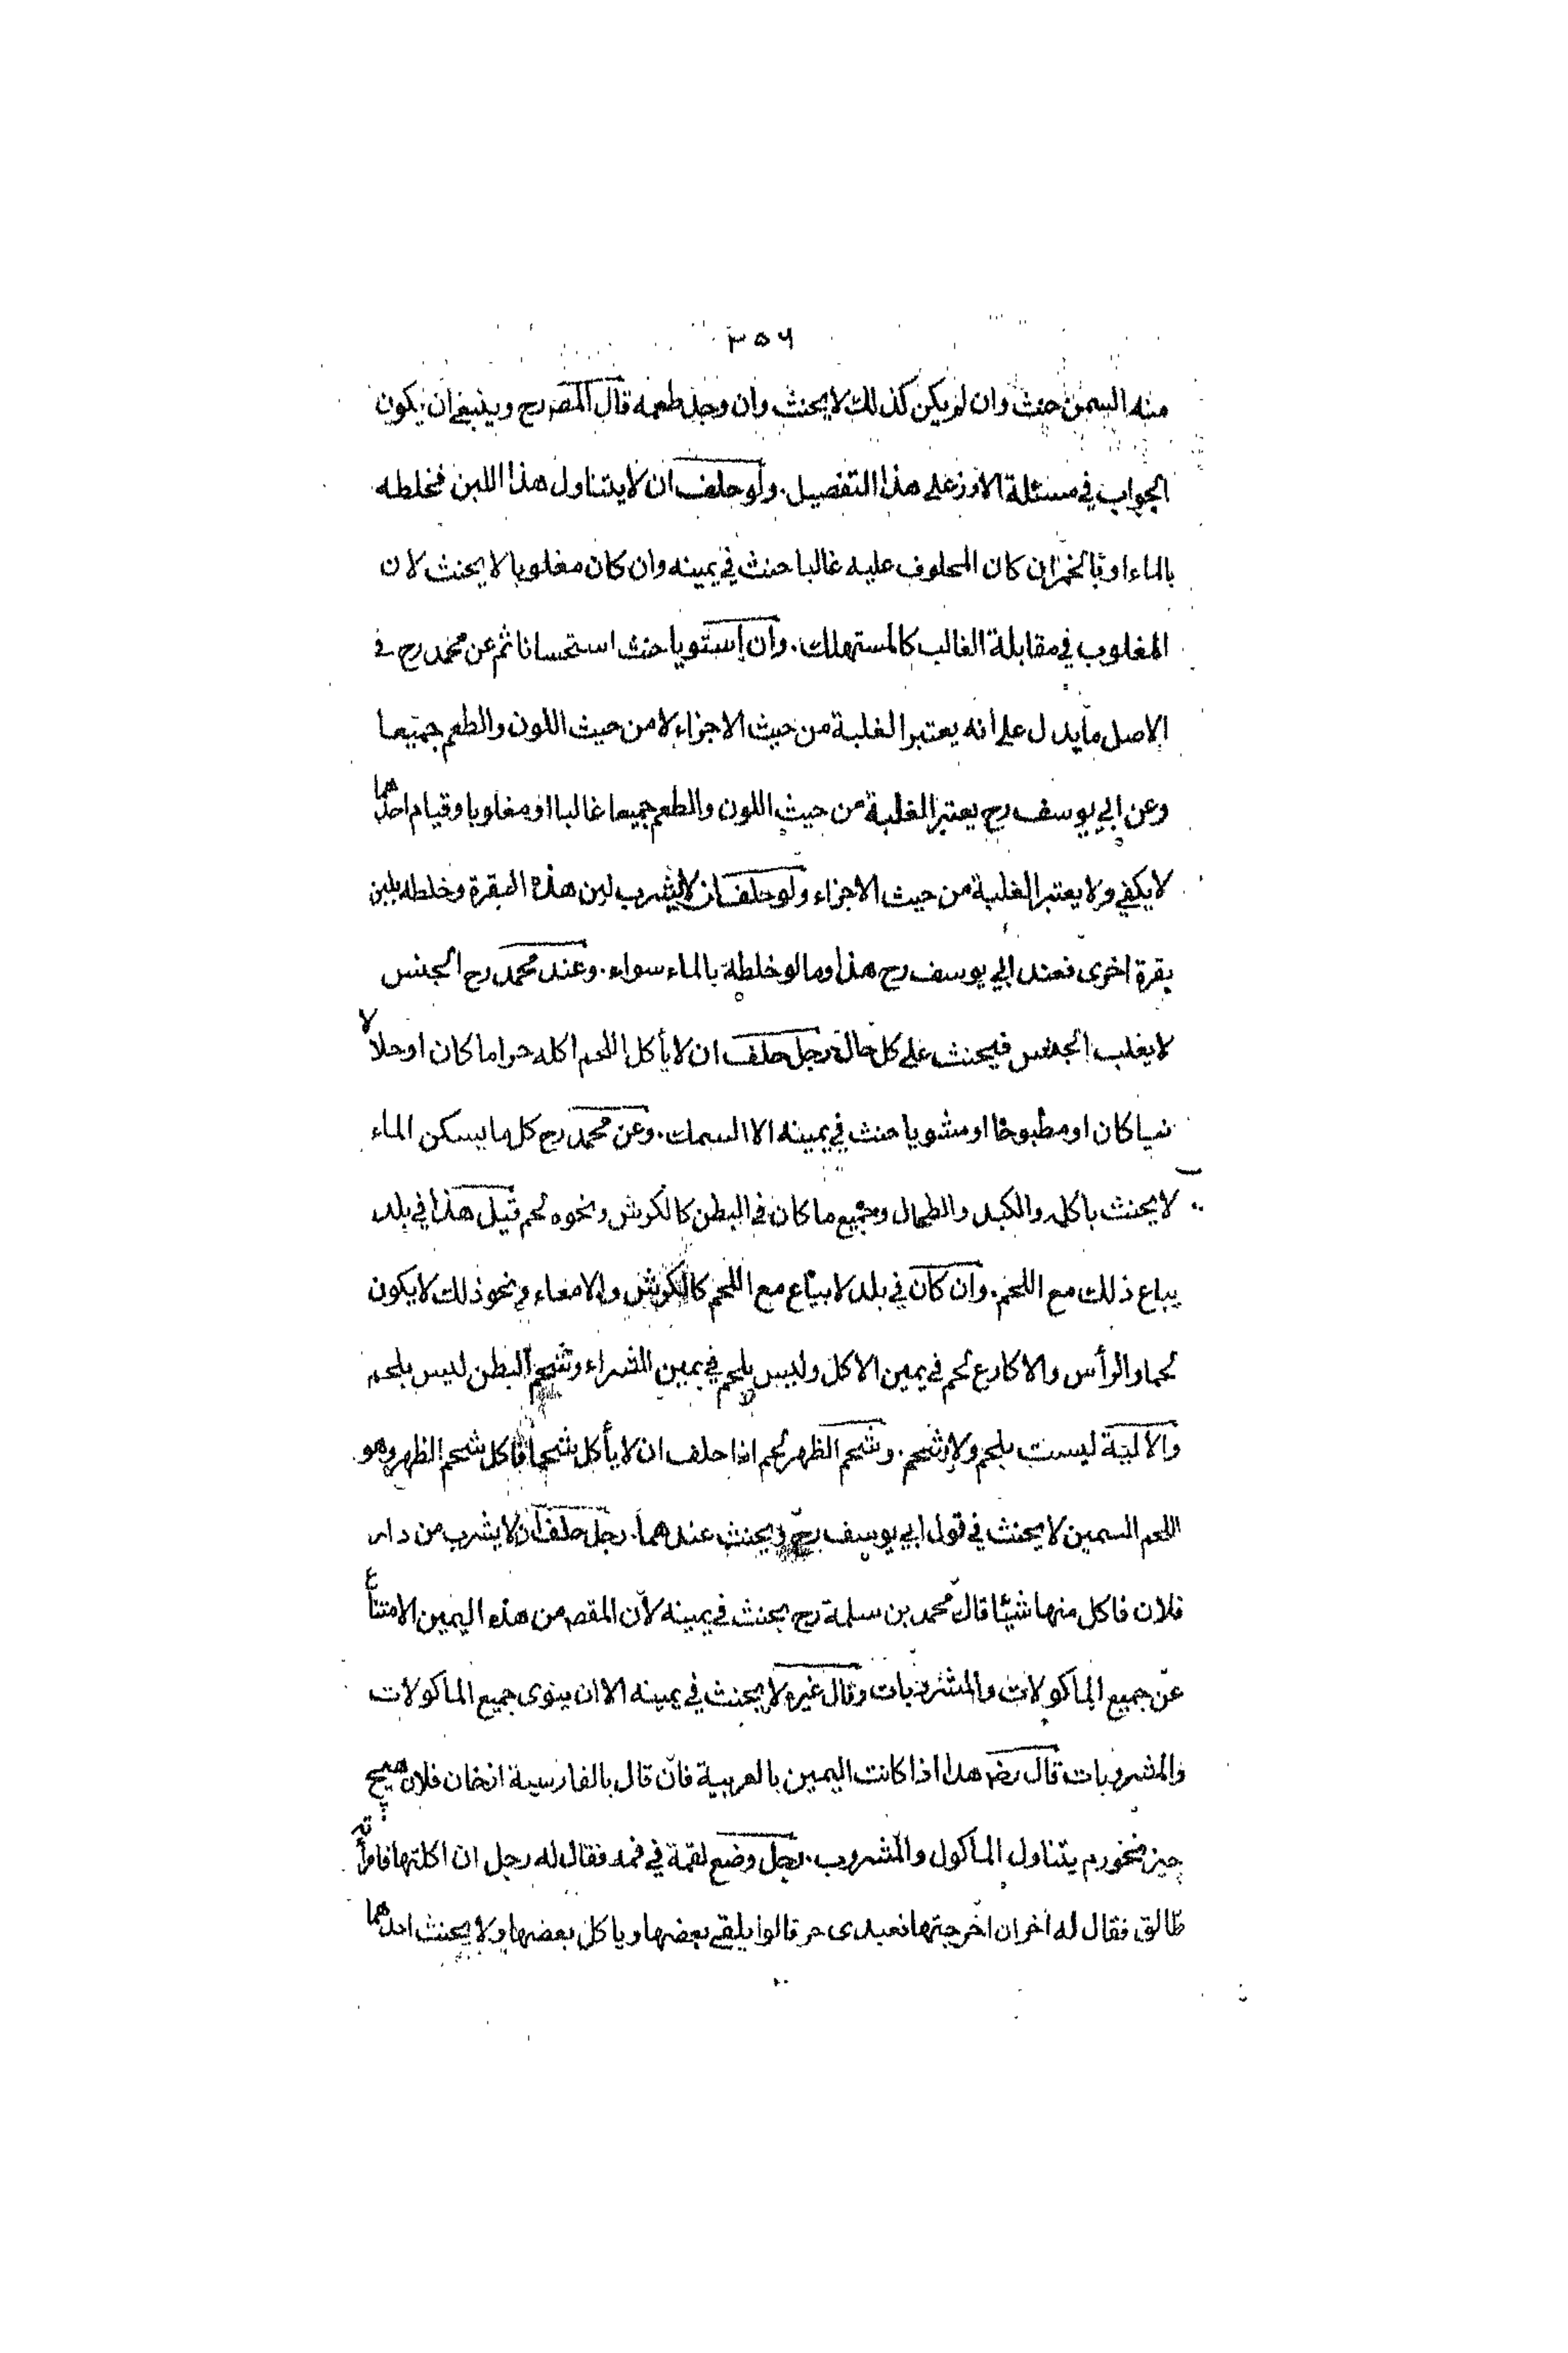 ٣٥٦
منه السمن حنث وان لم يكن كذلك لا يحنث وان وجد طعمه قال المصرح وينبغي ان يكون
الجواب في مسئلة الارز على هذا التفصيل. ولو حلف ان لا يتناول هذا اللبن فخلطه
بالماء او بالخمر ان كان المحلوف عليه غالبا حنث في يمينه وان كان مغلوبا لا يحنث لان
المغلوب في مقابلة الغالب كالمستهلك. وان استويا حنث استحسانا ثم عن محمد رح في
الاصل ما يدل على انه يعتبر الغلبة من حيث الاجزاء لا من حيث اللون والطعم جميعا
وعن ابي يوسف رح يعتبر الغلبة من حيث اللون والطعم جميعا غالبا او مغلوبا وقيام احدهما
لا يكفي ولا يعتبر الغلبة من حيث الاجزاء ولو حلف ان لا يشرب لبن هذه البقرة وخلطه بلبن
بقرة اخرى فعند ابي يوسف رح هذا وما لو خلطه بالماء سواء. وعند محمد رح الجنس
لا يغلب الجنس فيحنث على كل حال رجل حلف ان لا يأكل اللحم اكله حراما كان او حلالا
نيا كان او مطبوخا او مشويا حنث في يمينه الا السمك. وعن محمد رح كل ما يسكن الماء
لا يحنث باكله والكبد والطحال وجميع ما كان في البطن كالكرش ونحوه لحم قيل هذا في بلد
يباع ذلك مع اللحم. وان كان في بلد لا يباع مع اللحم كالكرش والامعاء ونحو ذلك لا يكون
لحما والرأس والاكارع لحم في يمين الاكل وليس بلحم في يمين الشراء وشحم البطن ليس بلحم
والالية ليست بلحم ولا شحم. وشحم الظهر لحم اذا حلف ان لا يأكل شحما فاكل شحم الظهر وهو
اللحم السمين لا يحنث في قول ابي يوسف رح ويحنث عندهما. رجل حلف ان لا يشرب من دار
فلان فاكل منها شيئا قال محمد بن سلمة رح يحنث في يمينه لان المقصمن هذه اليمين الامتناع
عن جميع الماكولات والمشروبات وقال غيره لا يحنث في يمينه الا ان ينوى جميع الماكولات
والمشروبات قال رض هذا اذا كانت اليمين بالعربية فان قال بالفارسية ازخان فلان هيچ
چيز نخورم يتناول الماكول والمشروب. رجل وضع لقمة في فمه فقال له رجل ان اكلتها فامرأته
طالق فقال له آخر ان اخرجتها فعبدى حر قالوا يلقي بعضها وياكل بعضها ولا يحنث احدهما